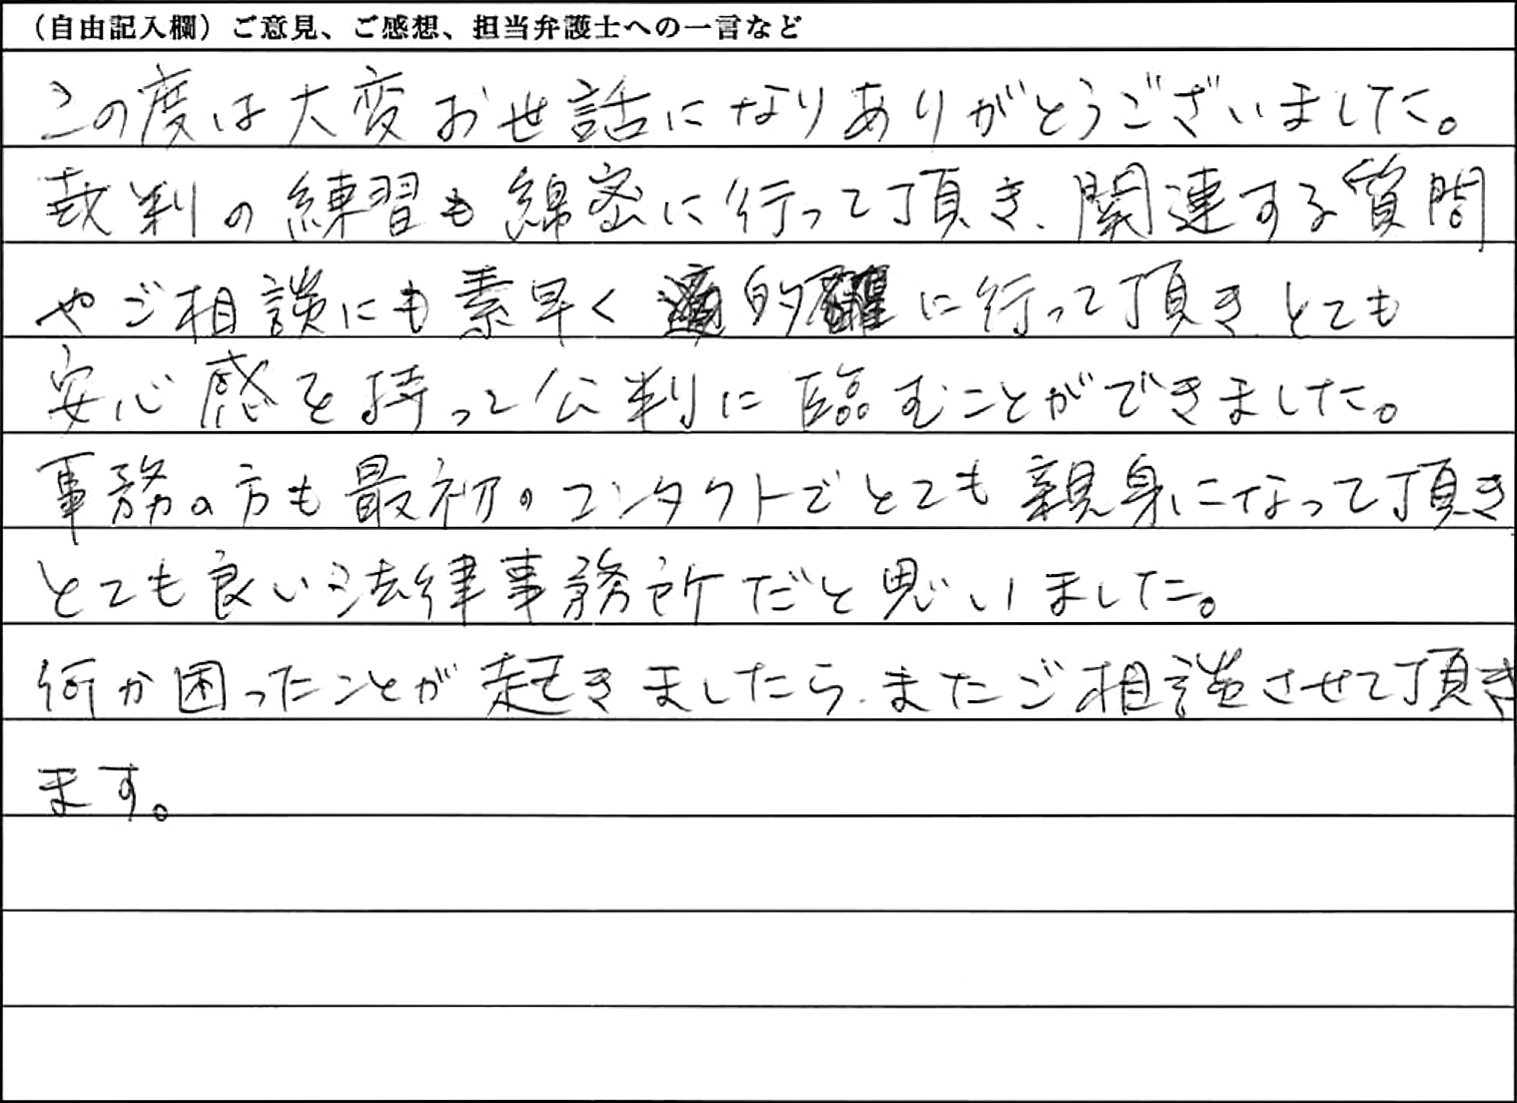 （自由記入欄）ご意見、ご感想、担当弁護士への一言など
この度は大変お世話になりありがとうございました。
裁判の練習も綿密に行って頂き、関連する質問
やご相談にも素早く 的確に行って頂き、とても
安心感を持って公判に臨むことができました。
事務の方も最初のコンタクトでとても親身になって頂き
とても良い法律事務所だと思いました。
何か困ったことが起きましたら、またご相談させて頂き
ます。